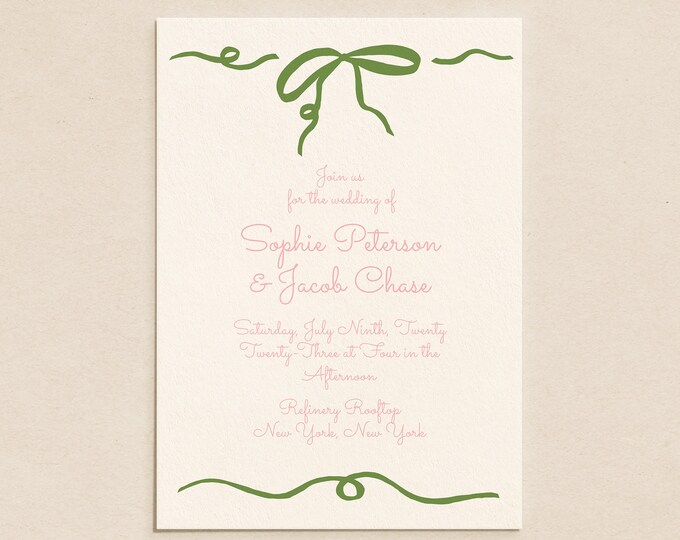 Join us
for the wedding of
Sophie Peterson
& Jacob Chase
Saturday, July Ninth, Twenty
Twenty-Three at Four in the
Afternoon
Refinery Rooftop
New York, New York